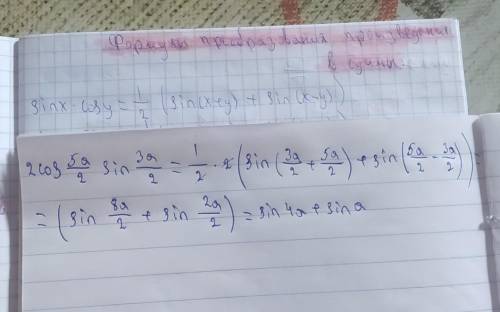 Формулы преобразования произведения
в суммы
sinx · cosy = 1/2 (sin(x+y) + sin(x-y))
2cos 5a/2 sin 3a/2 = 1/2 · 2 (sin(3a/2 + 5a/2) + sin(5a/2 - 3a/2)) =
= (sin 8a/2 + sin 2a/2) = sin4a + sina